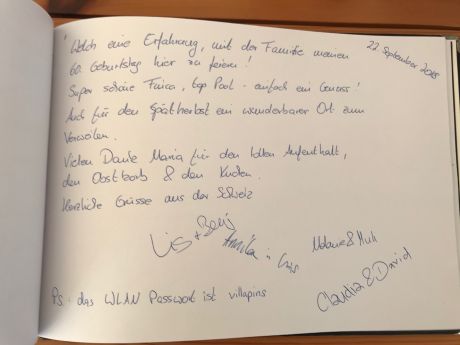 Welch eine Erfahrung, mit der Familie meinen
22. September 2018
60. Geburtstag hier zu feiern!
Super schöne Finca, top Pool - einfach ein Genuss!
Auch für den Spätherbst ein wunderbarer Ort zum
Verweilen.
Vielen Dank Maria für den tollen Aufenthalt,
den Obstkorb & den Kuchen.
Herzliche Grüsse aus der Schweiz
Lis + Beni
Melanie &
Claudia & David
PS. das WLAN Passwort ist villapins